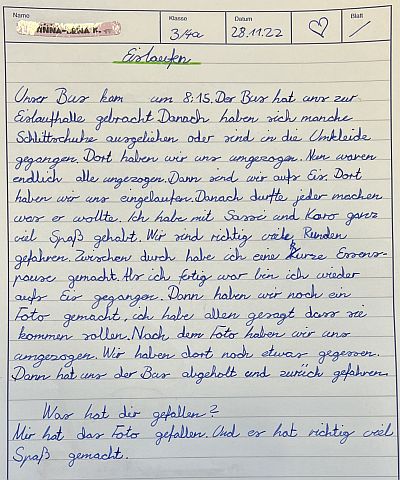 Name Klasse Datum Blatt
ANNA-LENA K. 3/4a 28.11.22
Eislaufen
Unser Bus kam um 8:15. Der Bus hat uns zur
Eislaufhalle gebracht. Danach haben sich manche
Schlittschuhe ausgeliehen oder sind in die Umkleide
gegangen. Dort haben wir uns umgezogen. Nun waren
endlich alle umgezogen. Dann sind wir aufs Eis. Dort
haben wir uns eingelaufen. Danach durfte jeder machen
was er wollte. Ich habe mit Sassi und Karo ganz
viel Spaß gehabt. Wir sind richtig viele Runden
gefahren. Zwischen durch habe ich eine kurze Essens-
pause gemacht. Als ich fertig war bin ich wieder
aufs Eis gegangen. Dann haben wir noch ein
Foto gemacht, ich habe allen gesagt dass sie
kommen sollen. Nach dem Foto haben wir uns
umgezogen. Wir haben dort noch etwas gegessen.
Dann hat uns der Bus abgeholt und zurück gefahren.
Was hat dir gefallen?
Mir hat das Foto gefallen. Und es hat richtig viel
Spaß gemacht.